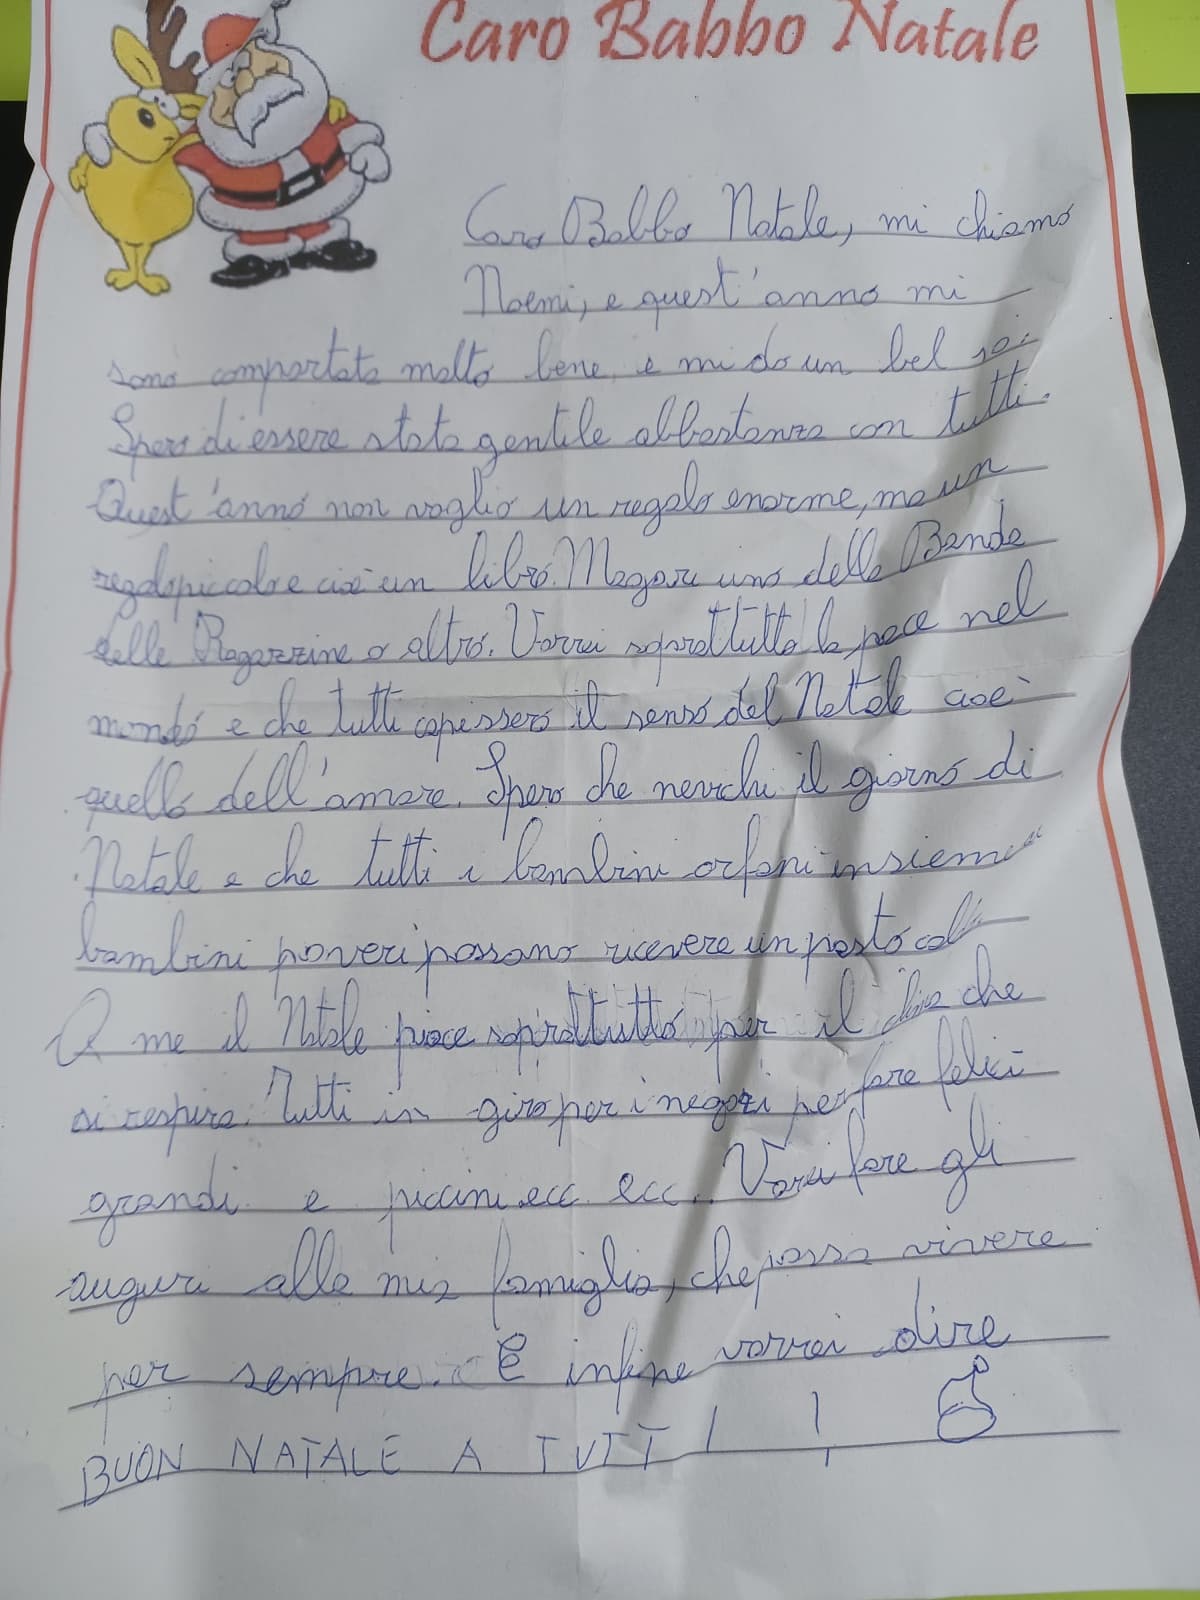 Caro Babbo Natale
Caro Babbo Natale, mi chiamo
Noemi, e quest'anno mi
sono comportata molto bene, e mi do un bel
Spero di essere stata gentile abbastanza con tutti.
Quest'anno non voglio un regalo enorme, ma un
regalo piccolo e cioè un libro. Magari uno della Banda
delle Ragazzine o altro. Vorrei soprattutto la pace nel
mondo e che tutti capissero il senso del Natale cioè
quello dell'amore. Spero che nevichi il giorno di
Natale e che tutti i bambini orfani insieme
bambini poveri possano ricevere un pasto
A me il Natale piace soprattutto per il che
si respira. Tutti in giro per i negozi per fare felici
grandi e piccini ecc. ecc.. Vorrei fare gli
auguri alla mia famiglia, che possa vivere
per sempre. E infine vorrei dire
BUON NATALE A TUTTI !